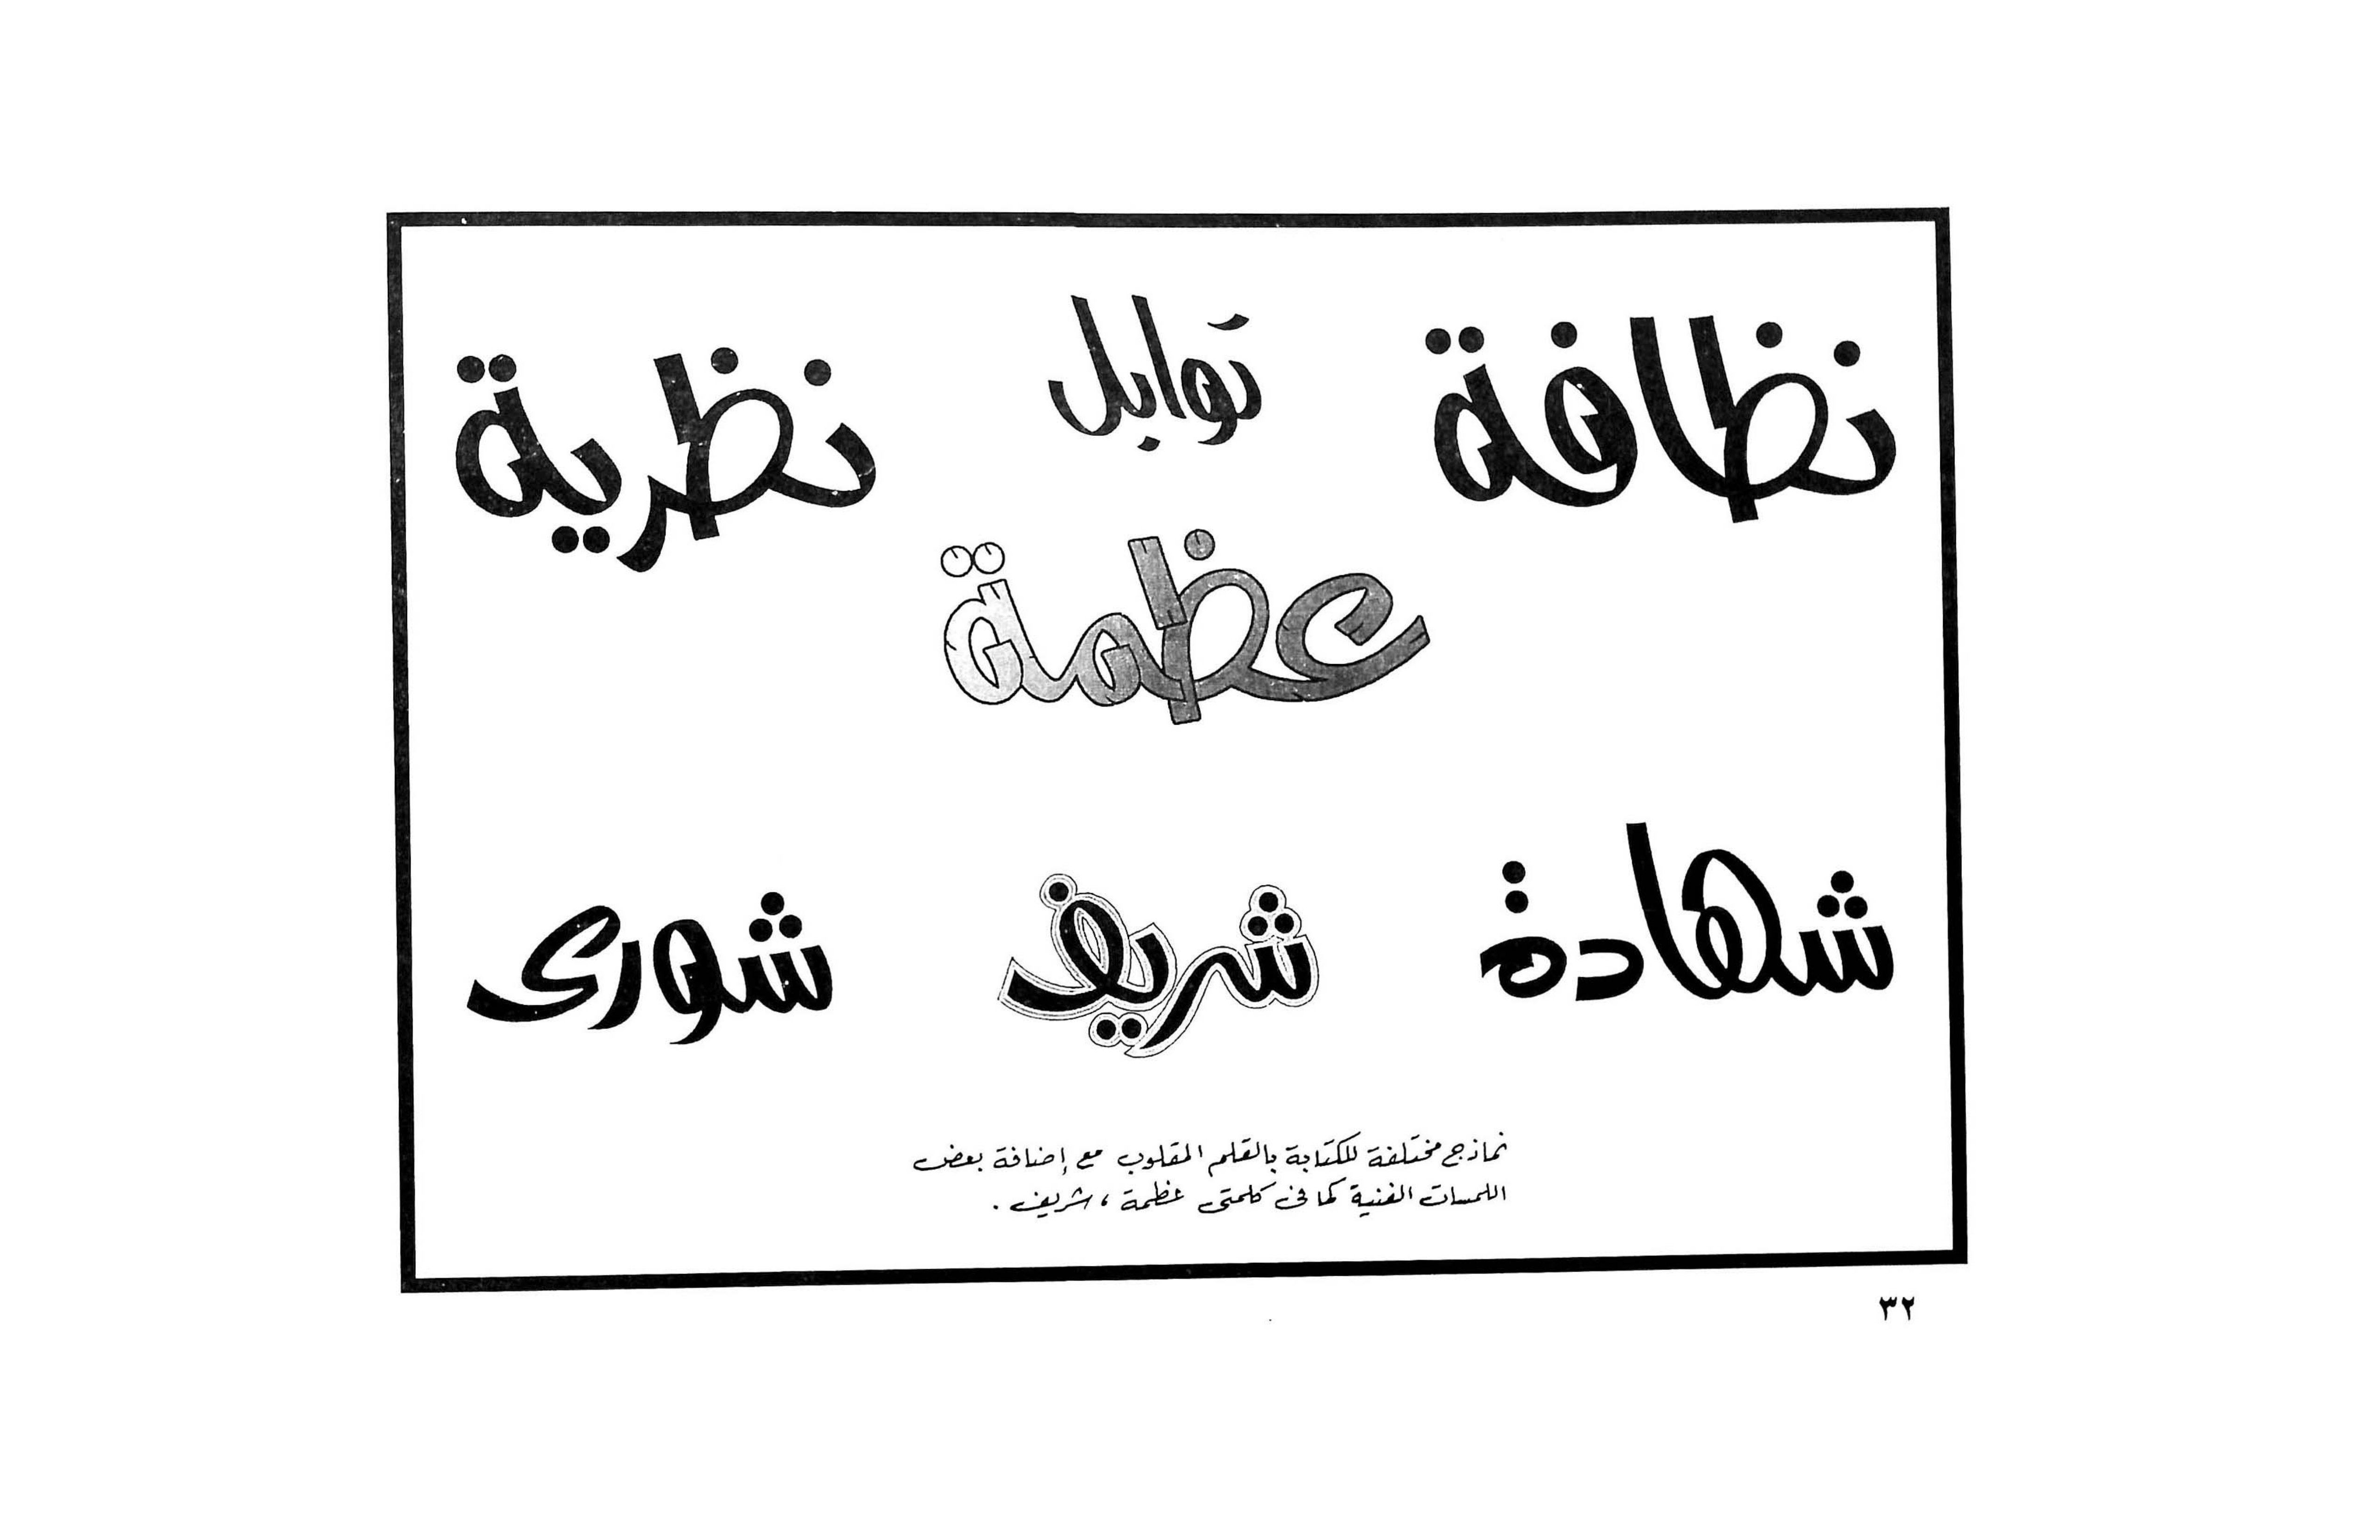 نظافة
توابل
نظرية
عظمة
شهادة
شريف
شورى
نماذج مختلفة للكتابة بالقلم المقلوب مع إضافة بعض
اللمسات الفنية كما فى كلمتى عظمة ، شريف .
٣٢